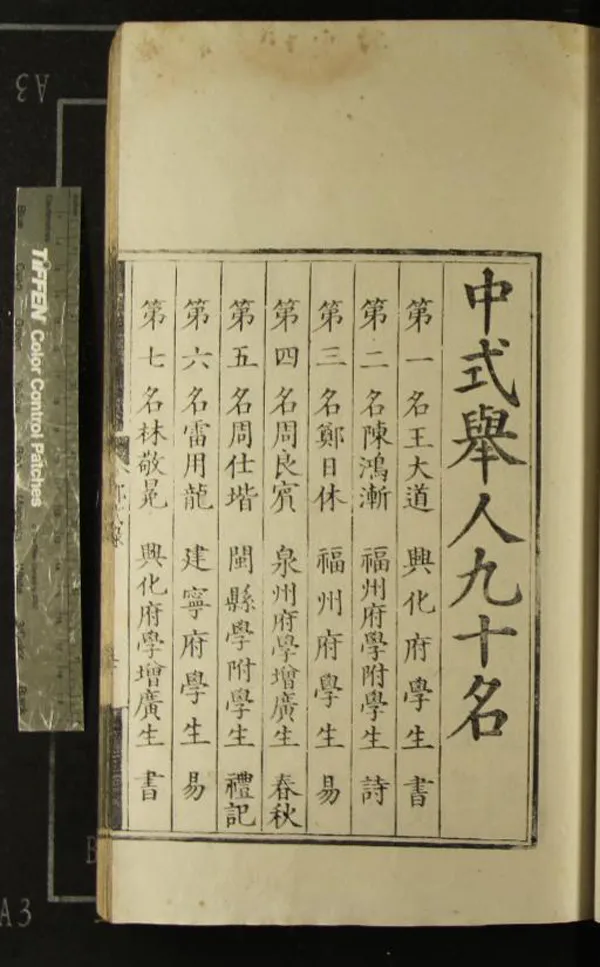 中式舉人九十名
第一名王大道 興化府學生 書
第二名陳鴻漸 福州府學附學生 詩
第三名鄭日休 福州府學生 易
第四名周良賓 泉州府學增廣生 春秋
第五名周仕堦 閩縣學附學生 禮記
第六名雷用龍 建寧府學生 易
第七名林敬冕 興化府學增廣生 書
TIFFEN Color Control Patches
A3
A3